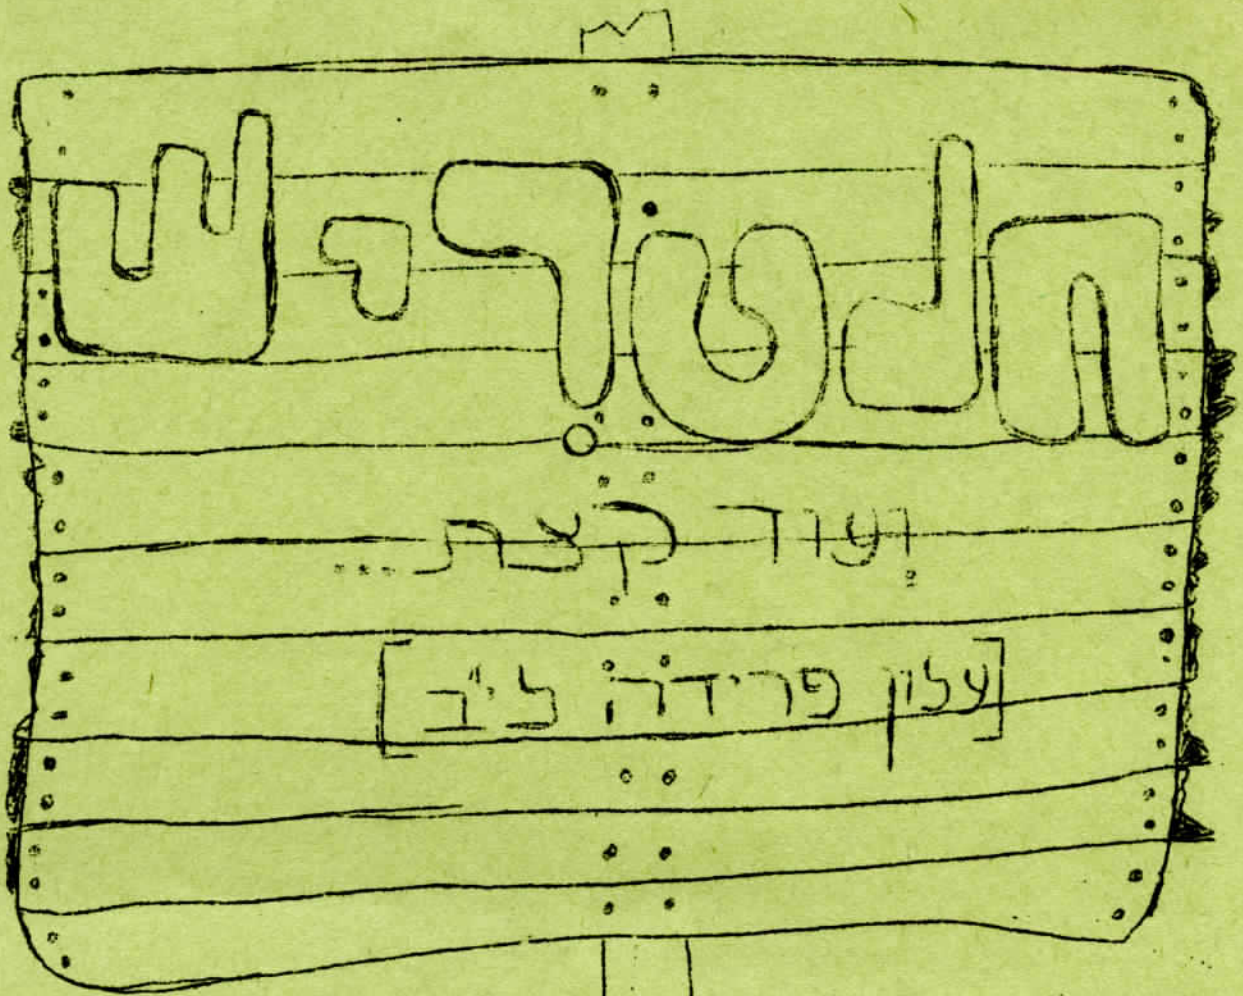 חלטריש
ועוד קצת...
[עלון פרידה לי"ב]